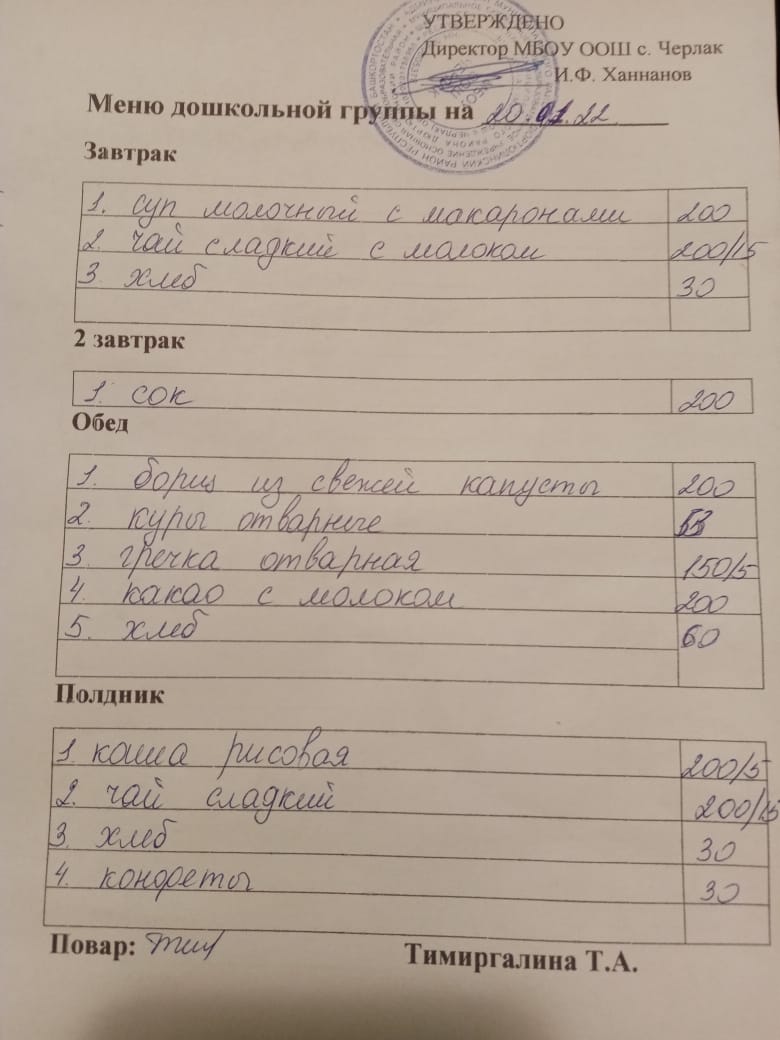 УТВЕРЖДЕНО
Директор МБОУ ООШ с. Черлак
И.Ф. Ханнанов
Меню дошкольной группы на 20.01.22
Завтрак
1. суп молочный с макаронами 200
2. чай сладкий с молоком 200/15
3. хлеб 30
2 завтрак
1. сок 200
Обед
1. борщ из свежей капусты 200
2. куры отварные
3. гречка отварная 150/5
4. какао с молоком 200
5. хлеб 60
Полдник
1. каша рисовая 200/5
2. чай сладкий 200/15
3. хлеб 30
4. конфеты 30
Повар: Тимиргалина Т.А.